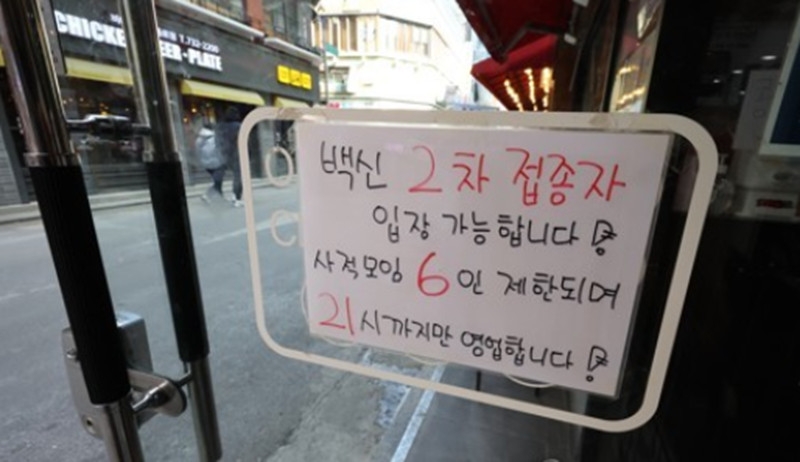 CHICKEN
T.732-2200
BEER-PLATE
백신 2차 접종자
입장 가능합니다!
사적모임 6인 제한되며
21시까지만 영업합니다!